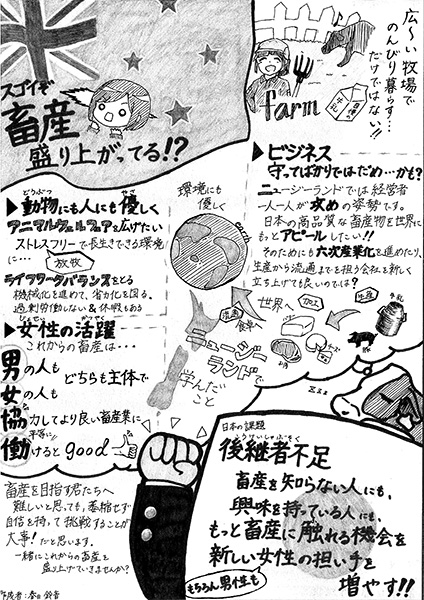 スゴイぞ
畜産
盛り上がってる!?
広〜い牧場で
のんびり暮らす…
だけではない!!
farm
▶ビジネス
守ってばかりではだめ…かも?
ニュージーランドでは経営者
一人一人が攻めの姿勢です。
日本の高品質な畜産物を世界に
もっとアピールしたい!!
そのためにも六次産業化を進めたり、
生産から流通までを担う会社を新しく
立ち上げても良いのでは?
環境にも
優しく
earth
▶動物にも人にも優しく
どうぶつ
やさ
アニマルウェルフェアを広げたい
ストレスフリーで長生きできる環境
に…
放牧
ライフワークバランスをとる
機械化を進めて、省力化を図る。
過剰労働しない&休暇もある
▶女性の活躍
じょせい
かつやく
これからの畜産は…
男の人も
女の人も
どちらも主体で
協力してより良い畜産業に
平等に
働けるとgood
世界へ
流通
加工
生産
牛乳
チーズ
ニュージー
ランドで
学んだ
こと
zzz
日本の課題
こうけいしゃぶそく
後継者不足
畜産を知らない人にも、
興味を持っている人にも、
もっと畜産に触れる機会を
新しい女性の担い手を
もちろん男性も
増やす!!
畜産を目指す君たちへ
難しいと思っても、悲観せず
自信を持って挑戦することが
大事!だと思います。
一緒にこれからの畜産を
盛り上げていきませんか?
作成者:春日 鈴音